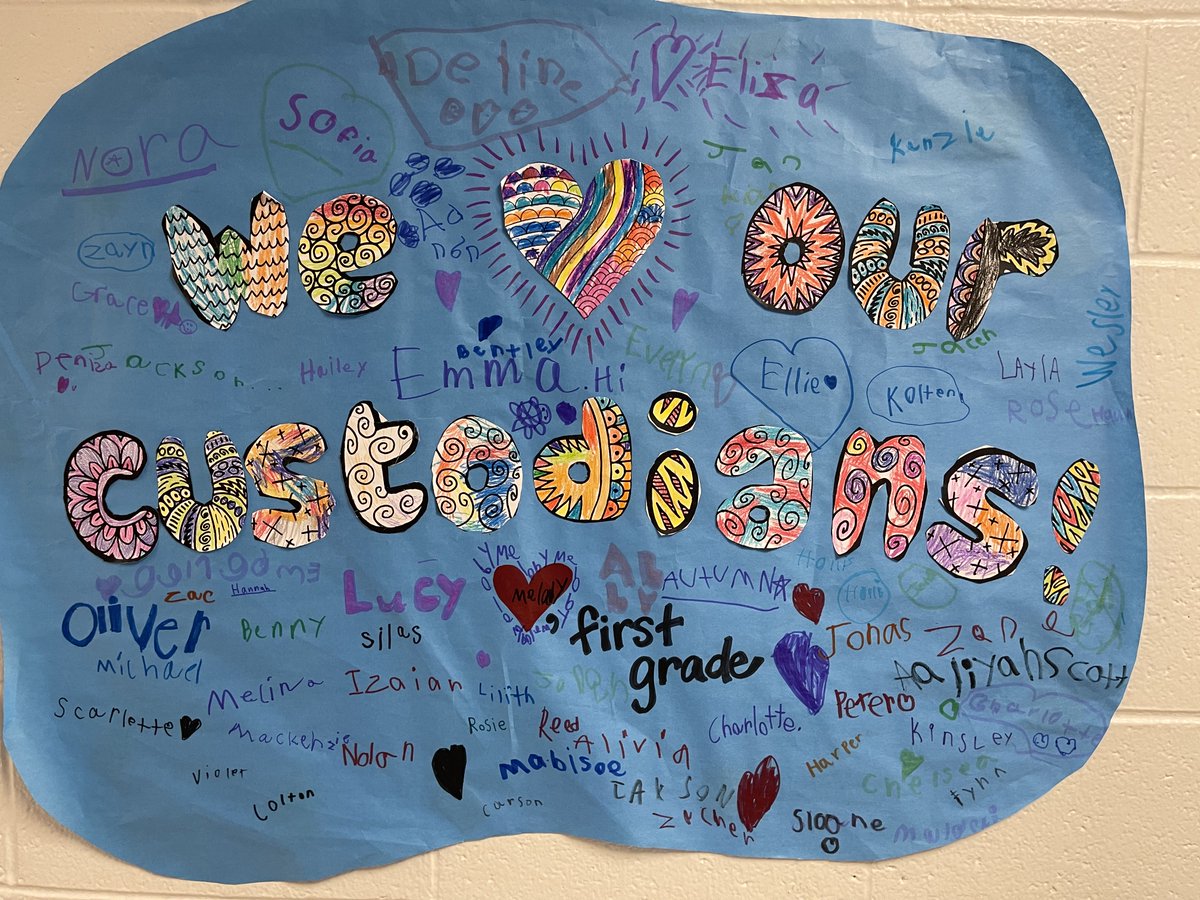 Deline
Eliza
Sofia
Nora
Kenzie
Jan
We ❤ our
Zayn
Grace
Wesley
Deniza
Jackson....
Hailey
Bentley
Emma.Hi
Evelyn
Ellie
Kolten
LAYLA
Rose
custodians!
Zac
Hannah
Lucy
melany
AUTUMN
Oliver
Benny
silas
-first
grade
Jonas
Zane
Aajiyah Scott
Michael
Melina
Izaiah
Lilith
Peter
Charlotte
Scarlette
Mackenzie
Nolan
Rosie
Reed
Alivia
Charlotte.
Kinsley
Harper
Chelsea
Violet
Colton
Carson
mabisoe
JAKSON
Zachery
Sloane